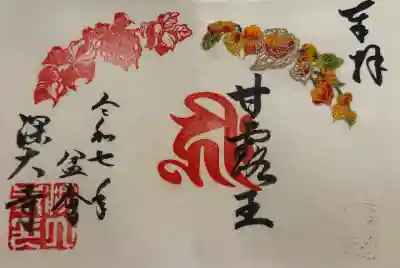 奉拝
甘露王
令和七年
盆会
深大寺